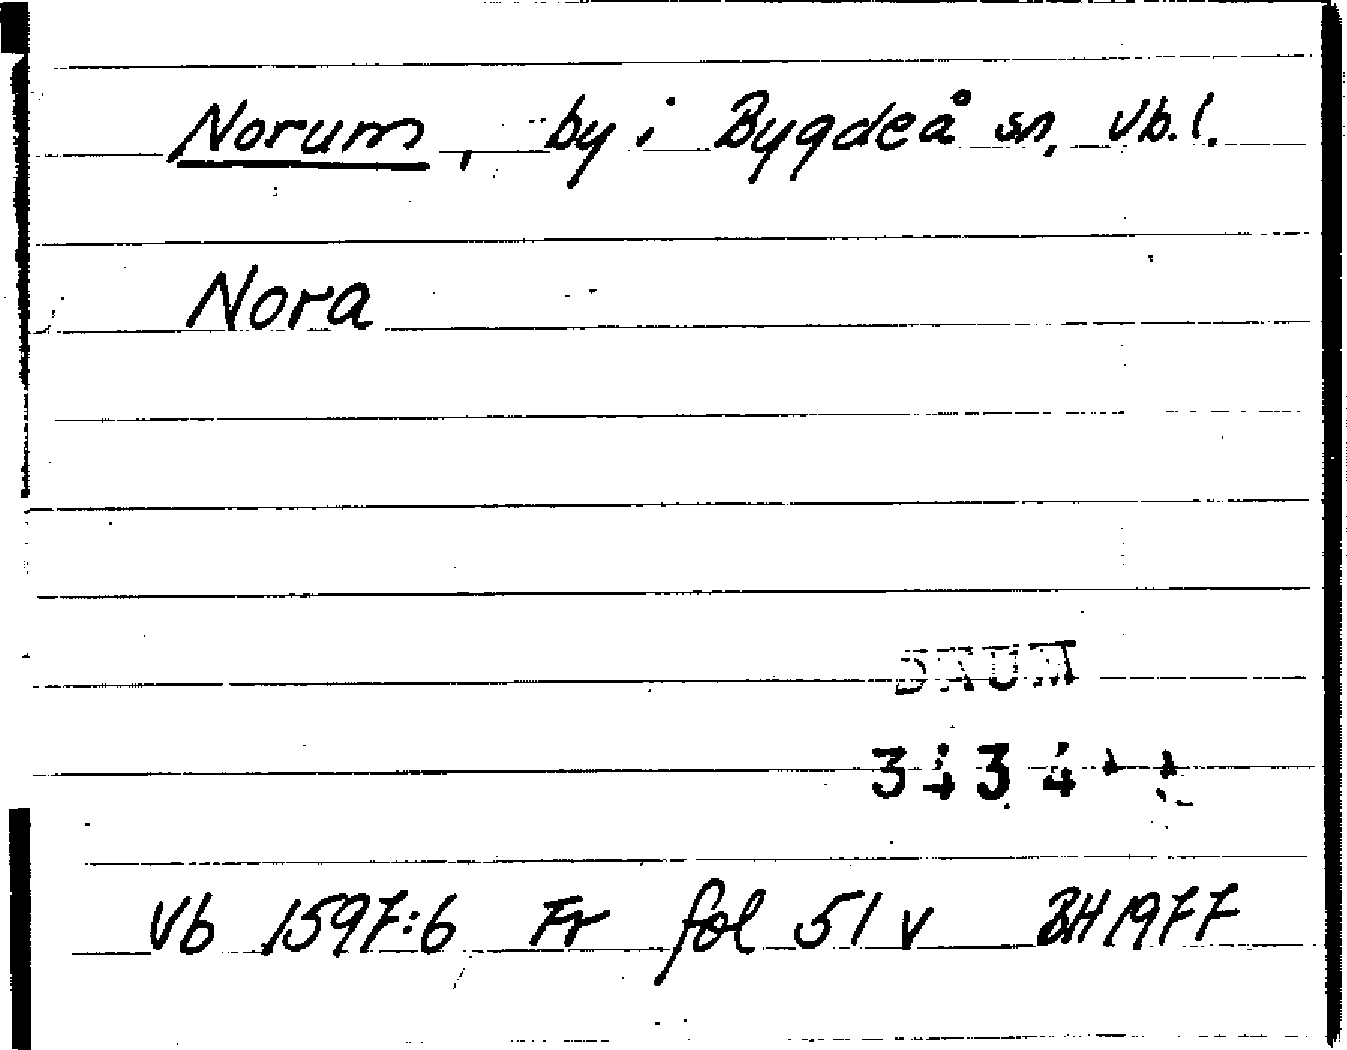 Norum, by i Bygdeå sn, Vb.l.
Nora
DAUM
3434
Vb 1597:6 Fr fol 51 v BH 1977